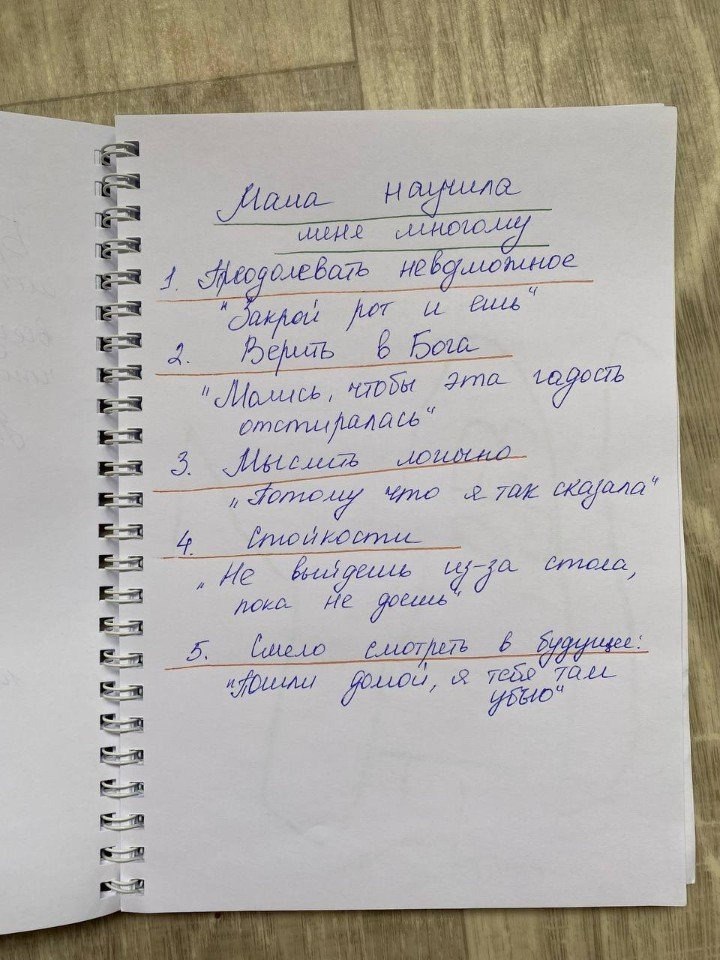 Мама научила
меня многому
1. Преодолевать невозможное
"Закрой рот и ешь"
2. Верить в Бога
"Молись, чтобы эта гадость
отстиралась"
3. Мыслить логично
"Потому что я так сказала"
4. Стойкости
"Не выйдешь из-за стола,
пока не доешь"
5. Смело смотреть в будущее:
"Пошли домой, я тебя там
убью"